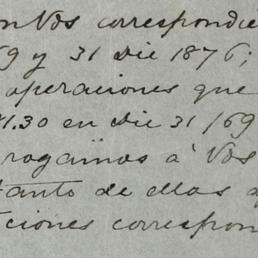 on Vds correspondie
69 y 31 Dic 1876;
operaciones que
41.30 en Dic 31/69
rogamos à Vds
tanto de ellas a
ciones correspon